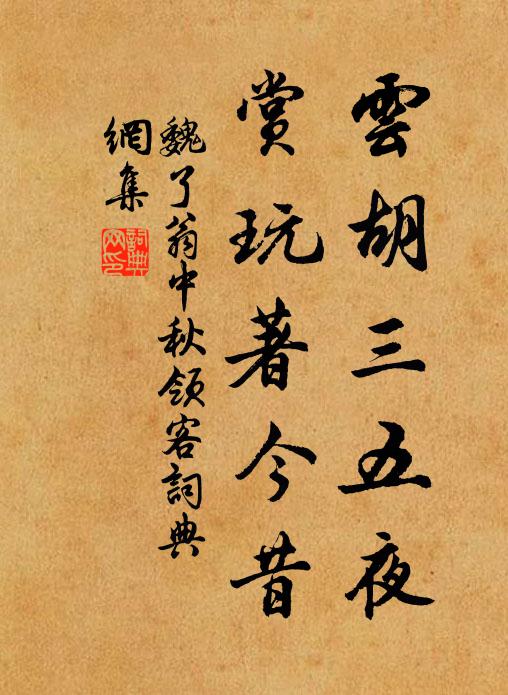 雲胡三五夜
賞玩著今昔
魏了翁中秋領客詞典
網集
詞典
網印